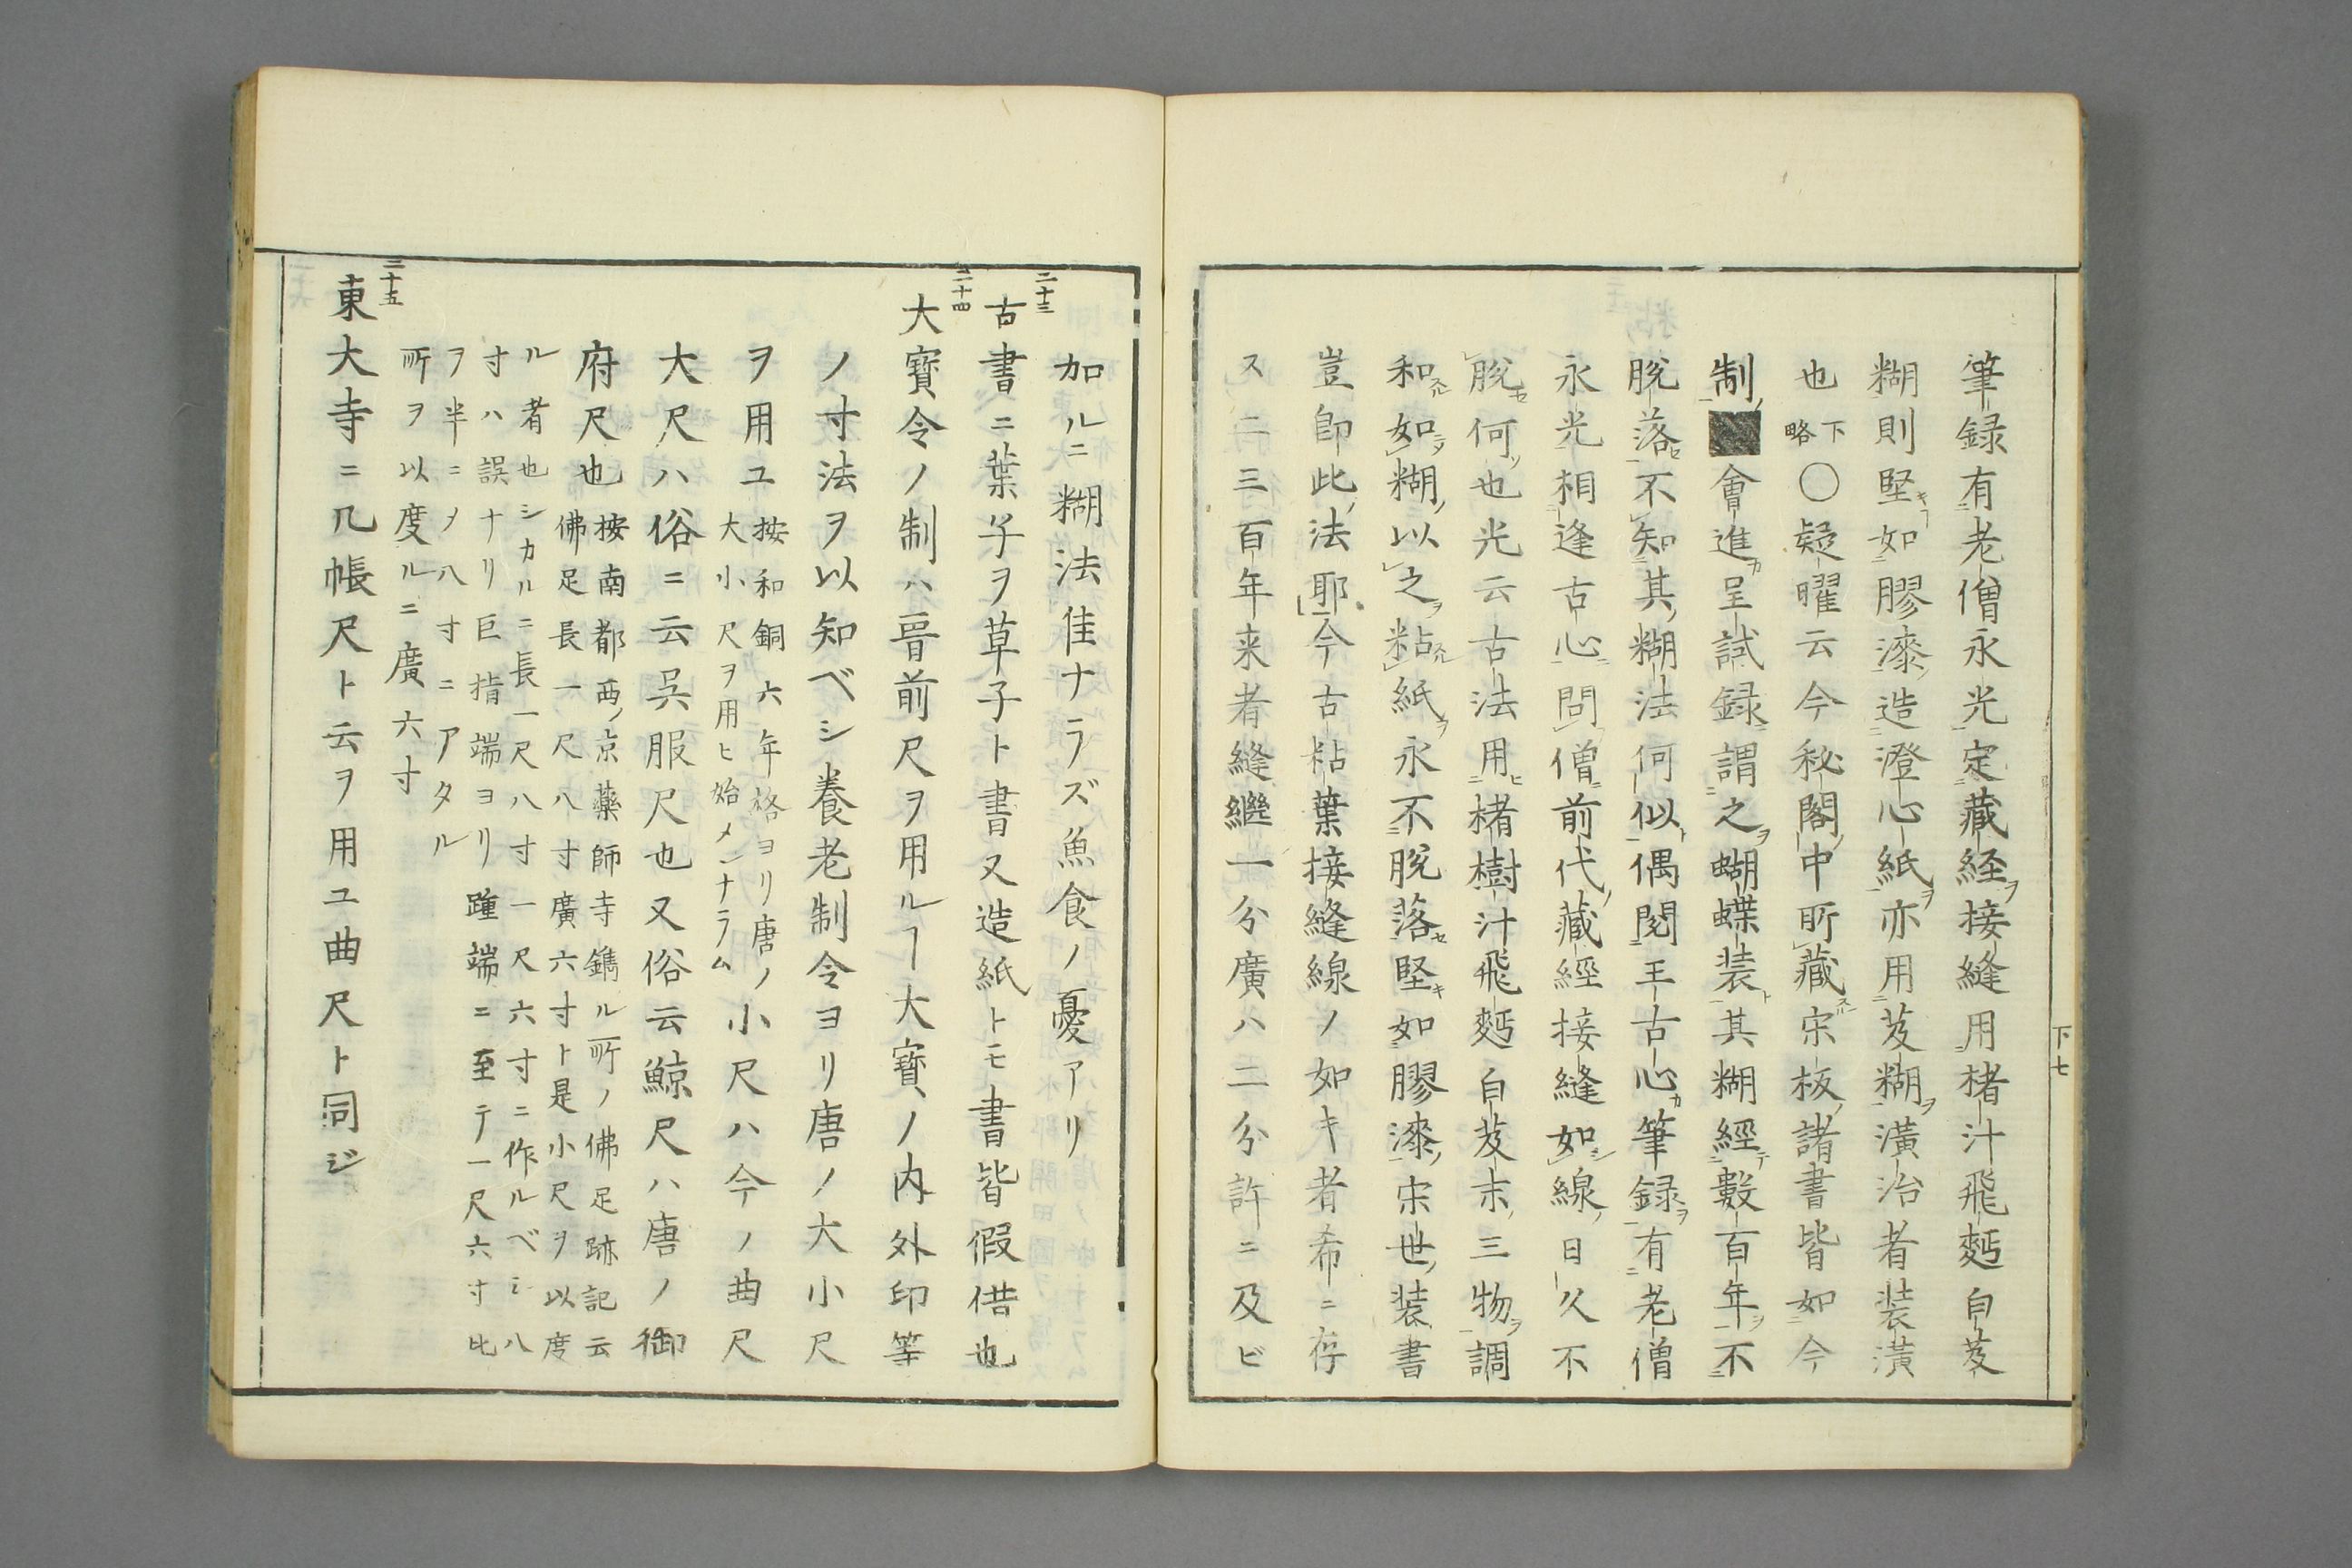 筆録有老僧永光定藏経接縫用楮汁飛麪白芨
糊則堅如膠漆造澄心紙亦用芨糊潢治者装潢
也下略〇疑曜云今秘閣中所藏宋板諸書皆如今
制會進呈試録謂之蝴蝶装其糊經數百年不
脱落不知其糊法何似偶閲王古心筆録有老僧
永光相逢古心問僧前代藏經接縫如線日久不
脱何也光云古法用楮樹汁飛麪白芨末三物調
和如糊以之粘紙永不脱落堅如膠漆宋世装書
豈卽此法耶今古粘葉接縫線ノ如キ者希ニ存
ス二三百年来者縫繼一分廣ハ二分許ニ及ビ
下七
加ルニ糊法佳ナラズ魚食ノ憂アリ
二十三
古書ニ葉子ヲ草子ト書又造紙トモ書皆假借也
二十四
大寶令ノ制ハ晉前尺ヲ用ルヿ大寶ノ内外印等
ノ寸法ヲ以知ベシ養老制令ヨリ唐ノ大小尺
ヲ用ユ按和銅六年格ヨリ唐ノ
大小尺ヲ用ヒ始メシナラム小尺ハ今ノ曲尺
大尺ハ俗ニ云呉服尺也又俗云鯨尺ハ唐ノ御
府尺也按南都西ノ京藥師寺鐫ル所ノ佛足跡記云
佛足長一尺八寸廣六寸ト是小尺ヲ以度
ル者也シカルニ長一尺八寸一尺六寸ニ作ルベシ八
寸ハ誤ナリ巨指端ヨリ踵端ニ至テ一尺六寸比
ヲ半ニメ八寸ニアタル
所ヲ以度ルニ廣六寸
二十五
東大寺ニ几帳尺ト云ヲ用ユ曲尺ト同ジ